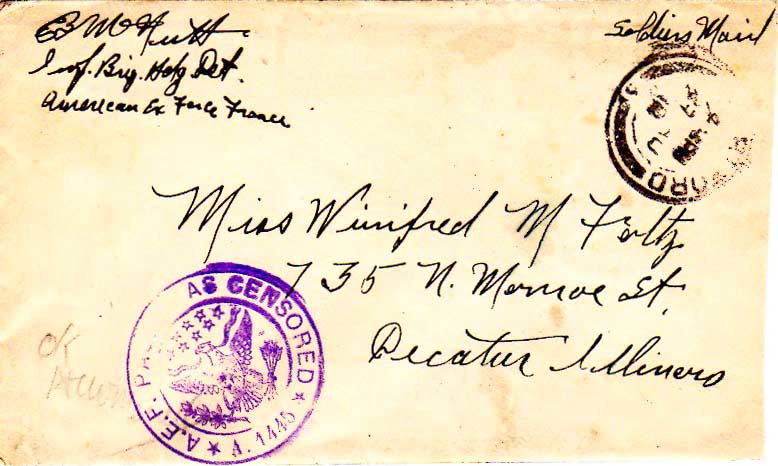 E B McNutt
Inf. Brig. Hdq. Det.
American Ex Force France
Soldiers Mail
Miss Winifred M Foltz
735 N. Monroe St.
Decatur Illinois
A.E.F. PA AS CENSORED
A. 1445
OK